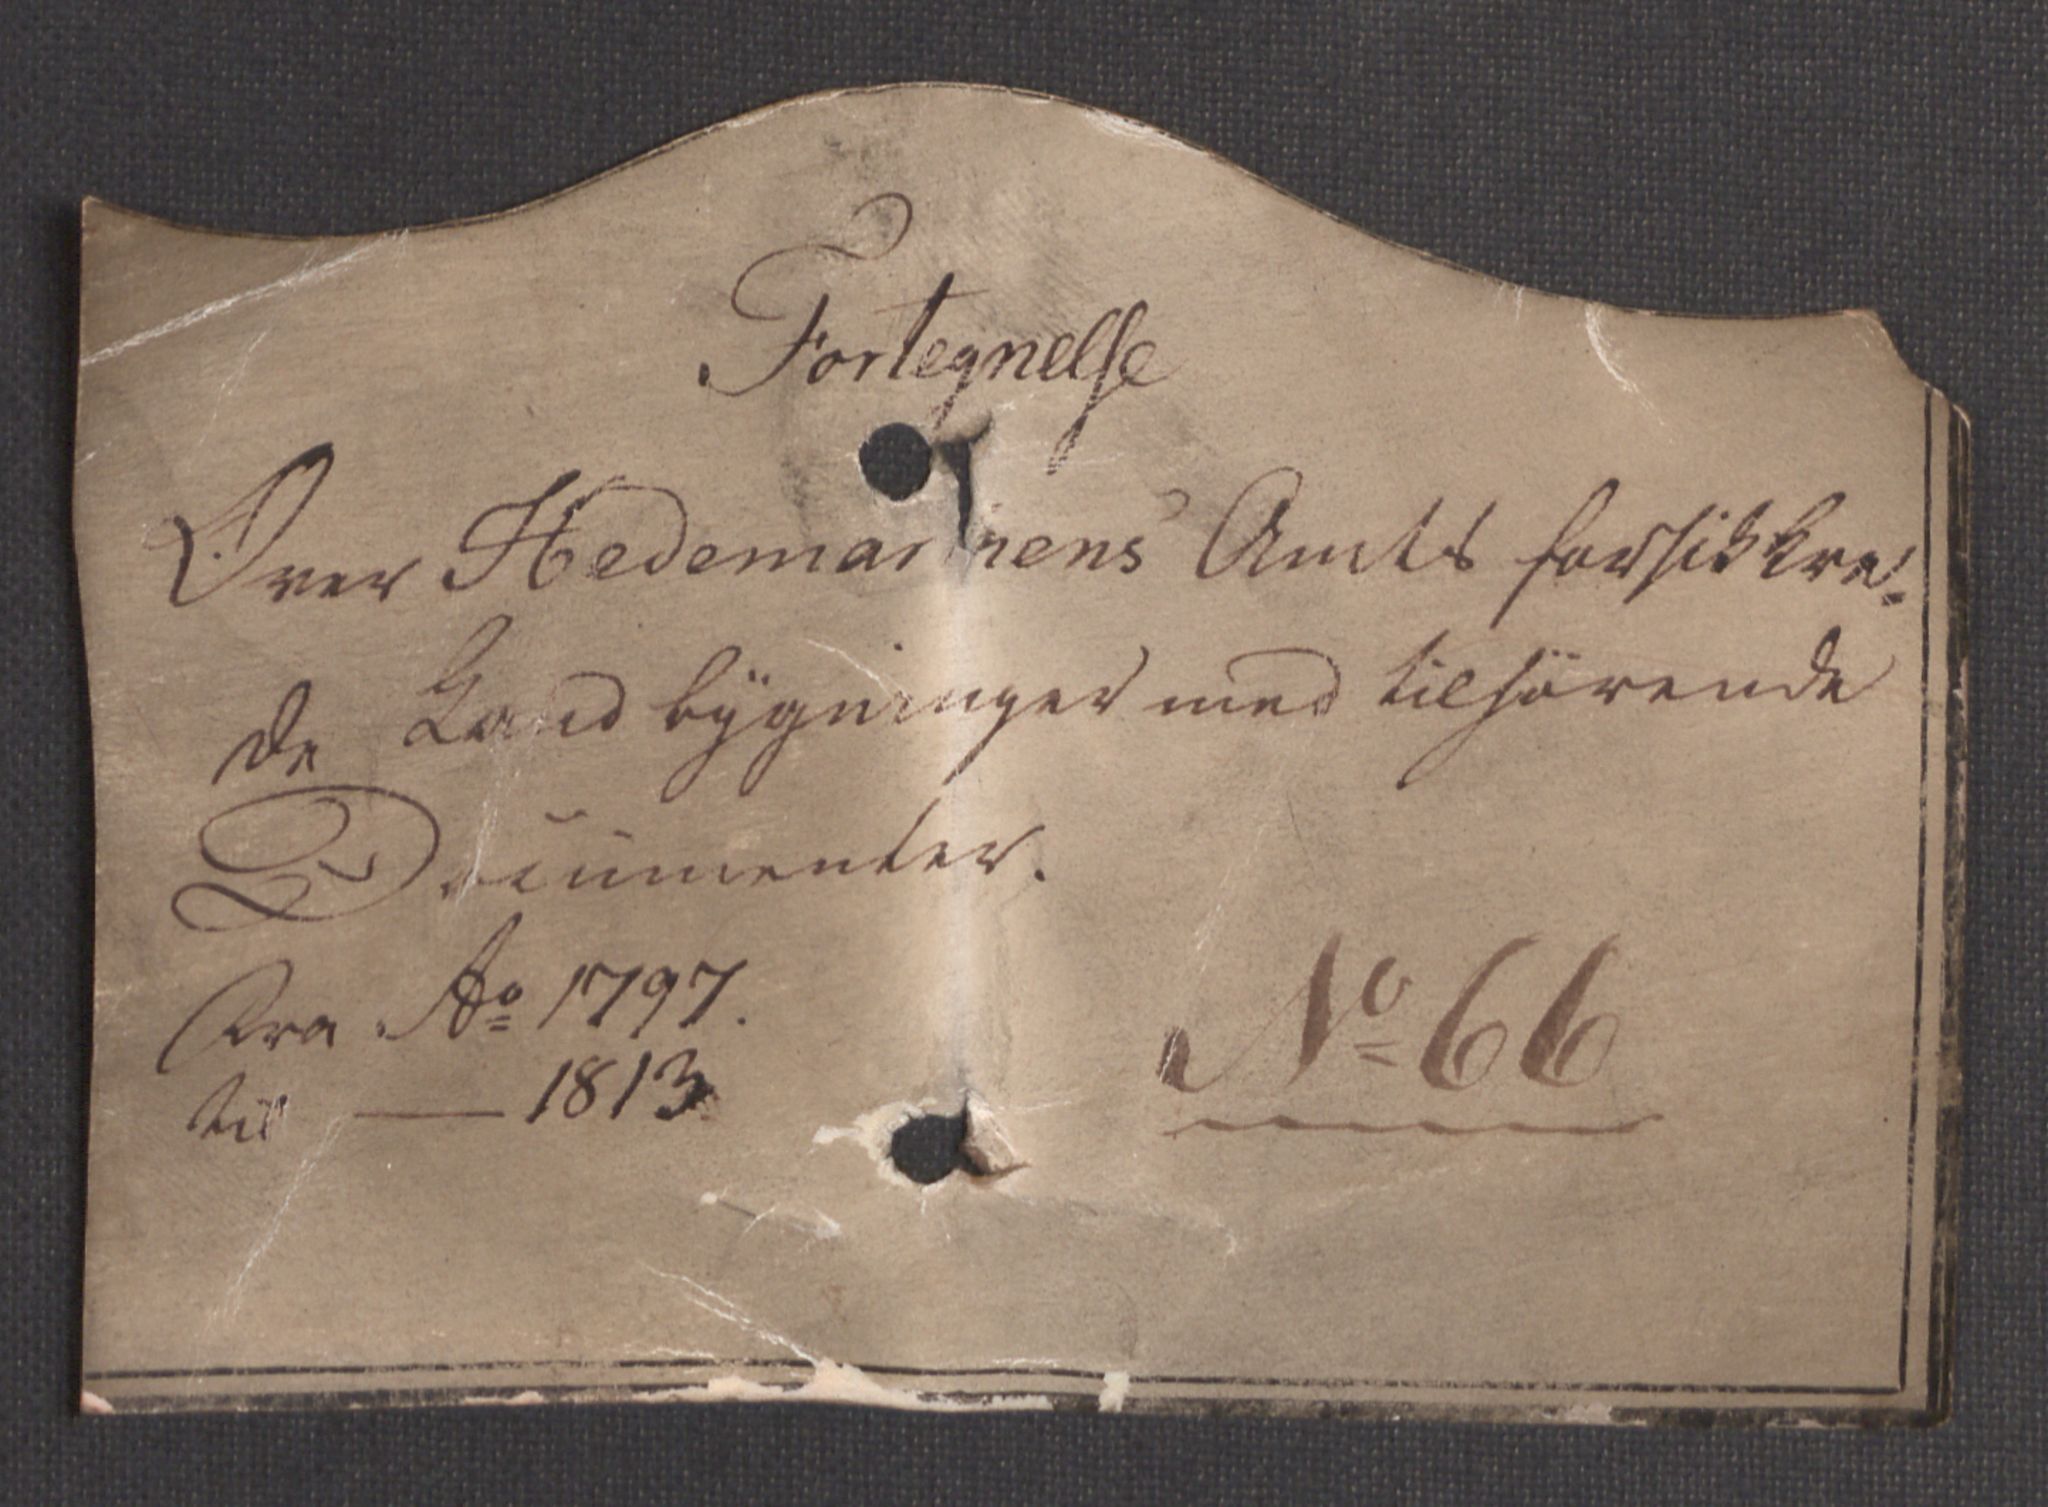 Fortegnelse
Over Hedemarkens Amts forsikkre-
de Land bÿgninger med tilhörende
Documenter.
Fra Ao 1797.
til — 1813
No 66